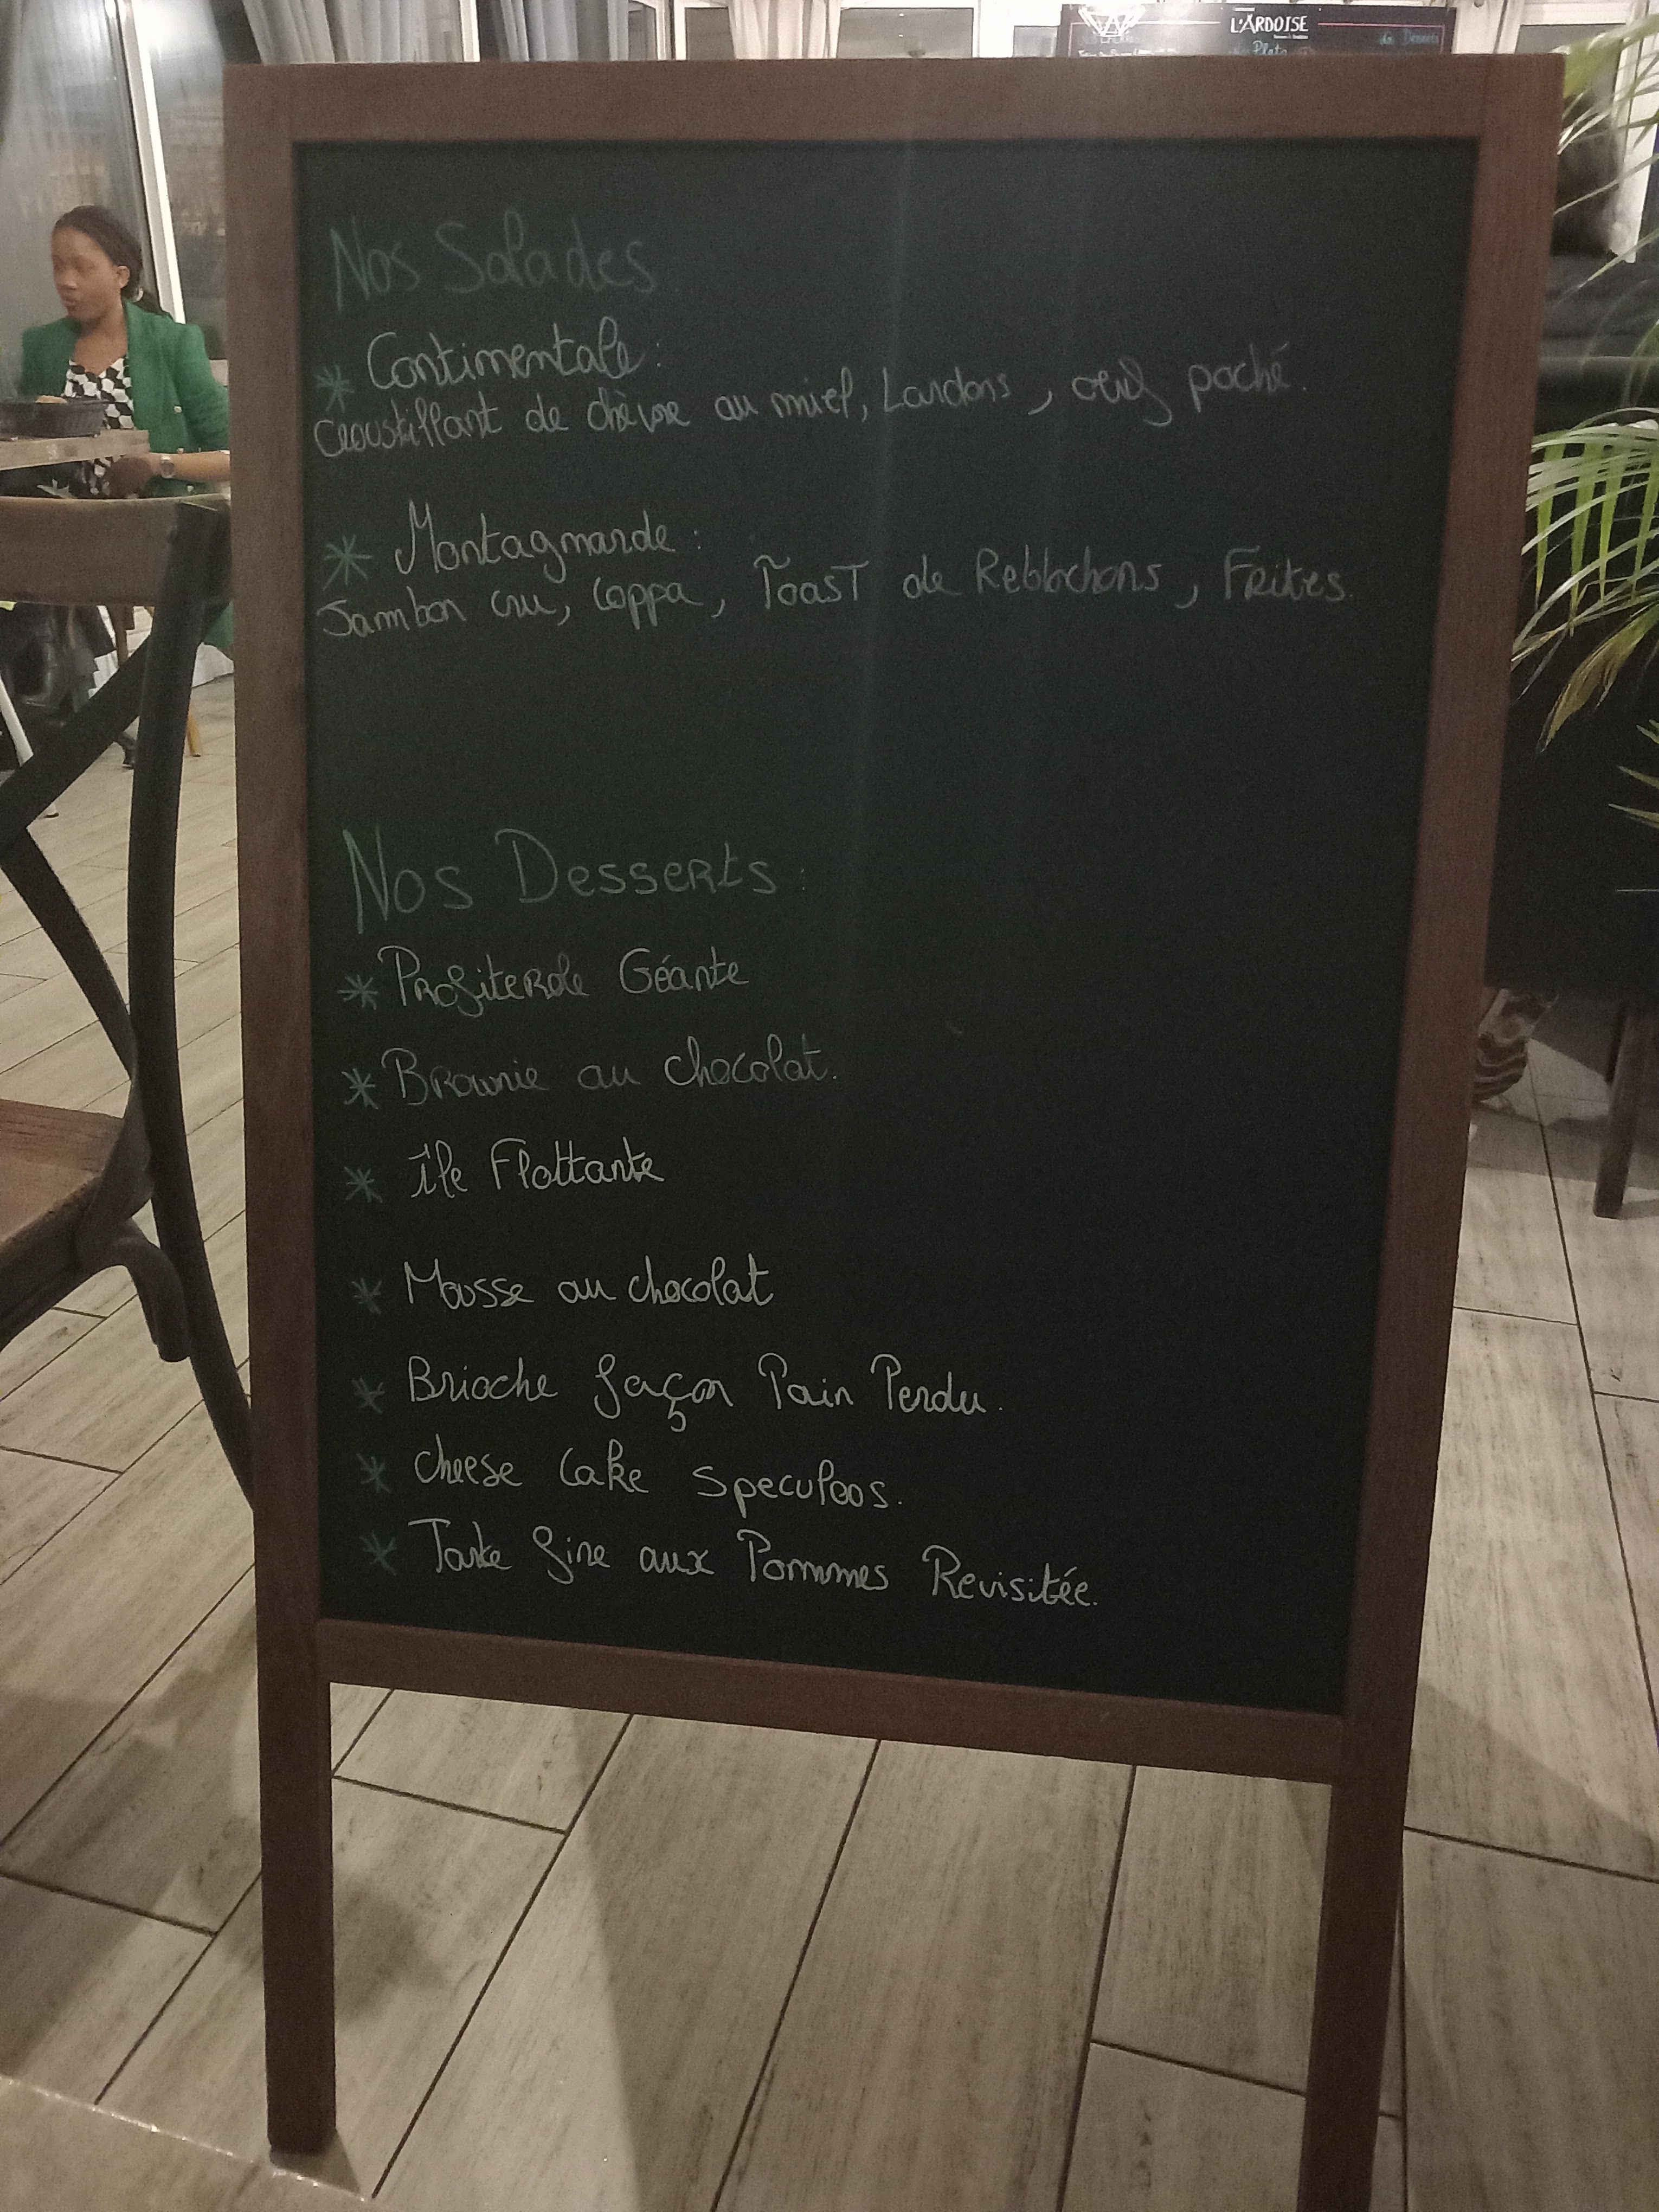 L'ARDOISE
Plats
Desserts
Nos Salades
* Continentale :
Croustillant de chèvre au miel, Lardons, oeuf poché.
* Montagnarde :
Jambon cru, Coppa, Toast de Reblochons, Frites.
Nos Desserts :
* Profiterole Géante
* Brownie au chocolat.
* île Flottante
* Mousse au chocolat
* Brioche façon Pain Perdu.
* Cheese Cake Speculoos.
* Tarte fine aux Pommes Revisitée.